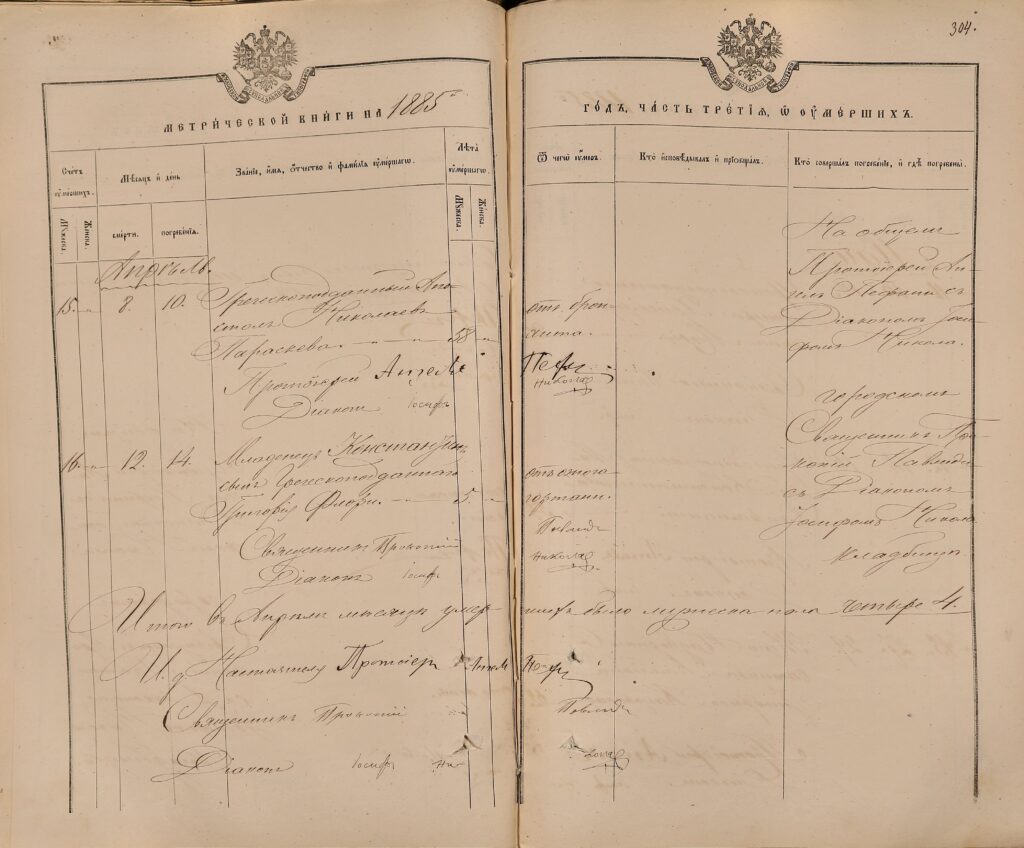 304.
МЕТРИ́ЧЕСКОЙ КНИ́ГИ НА 1885й
ГО́ДЪ, ЧА́СТЬ ТРЕ́ТІѦ, Ѡ ОУ҆МЕ́РШИХЪ.
Сче́тъ оу҆ме́ршихъ.
Мѣ́сѧцъ и҆ де́нь
Зва́ніе, и҆́мѧ, ѻ҆́тчество и҆ фами́лїѧ оу҆ме́ршагѡ.
Лѣ́та оу҆ме́ршагѡ.
Ѿ чегѡ̀ оу҆́меръ.
Кто̀ и҆сповѣ́дывалъ и҆ прїѻбща́лъ.
Кто̀ соверша́лъ погребе́нїе, и҆ гдѣ̀ погребены̀.
Мꙋжеска.
Женска.
сме́рти.
погребе́нїѧ.
Мꙋжеска.
Женска.
Апрѣль.
15. 8. 10. Греческоподданный Апо-
столъ Николаевъ
Параскева. 58
отъ брон-
хита.
На общемъ
Протоіерей Ан-
гелъ Пефани съ
Діакономъ Іоси-
фомъ Никола.
Протоіерей Ангелъ Пефани
Діаконъ Іосифъ Никола
16. 12. 14. Младенецъ Константинъ
сынъ Греческоподданнаго
Григорія Флори. 5.
гортани.
городскомъ
Священникъ Про-
копій Павлиди
съ Діакономъ
Іосифомъ Никола
кладбищѣ
Священникъ Прокопій Павлиди
Діаконъ Іосифъ Никола
Итого въ Апрѣлѣ мѣсяцѣ умер-
шихъ было мужеска пола четыре 4.
И. д. Настоятеля Протоіерей Ангелъ Пефани
Священникъ Прокопій Павлиди
Діаконъ Іосифъ Никола